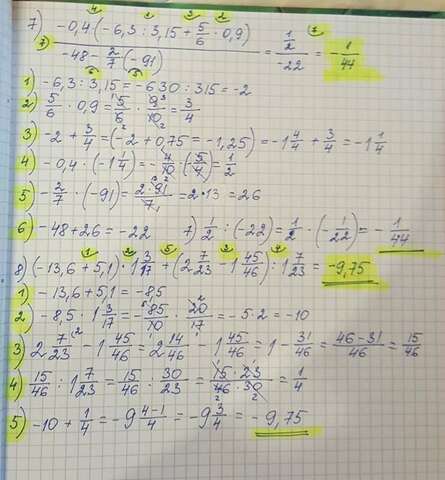 7) -0,4·(-6,3:3,15+5/6·0,9) / -48-2/7·(-91) = 1/2 / -22 = -1/44
1) -6,3:3,15=-630:315=-2
2) 5/6·0,9=5/6·9/10=3/4
3) -2+3/4=(-2+0,75=-1,25)=-1 4/4+3/4=-1 1/4
4) -0,4·(-1 1/4)=-4/10·(5/4)=1/2
5) -2/7·(-91)=2·91/7=2·13=26
6) -48+26=-22 7) 1/2:(-22)=1/2·(-1/22)=-1/44
8) (-13,6+5,1)·1 3/17+(2 7/23-1 45/46):1 7/23=-9,75
1) -13,6+5,1=-85
2) -85·1 3/17=-85/10·20/17=-5·2=-10
3) 2 7/23-1 45/46=2 14/46-1 45/46=1-31/46=46-31/46=15/46
4) 15/46:1 7/23=15/46:30/23=15·23/46·30=1/4
5) -10+1/4=-9 4-1/4=-9 3/4=-9,75